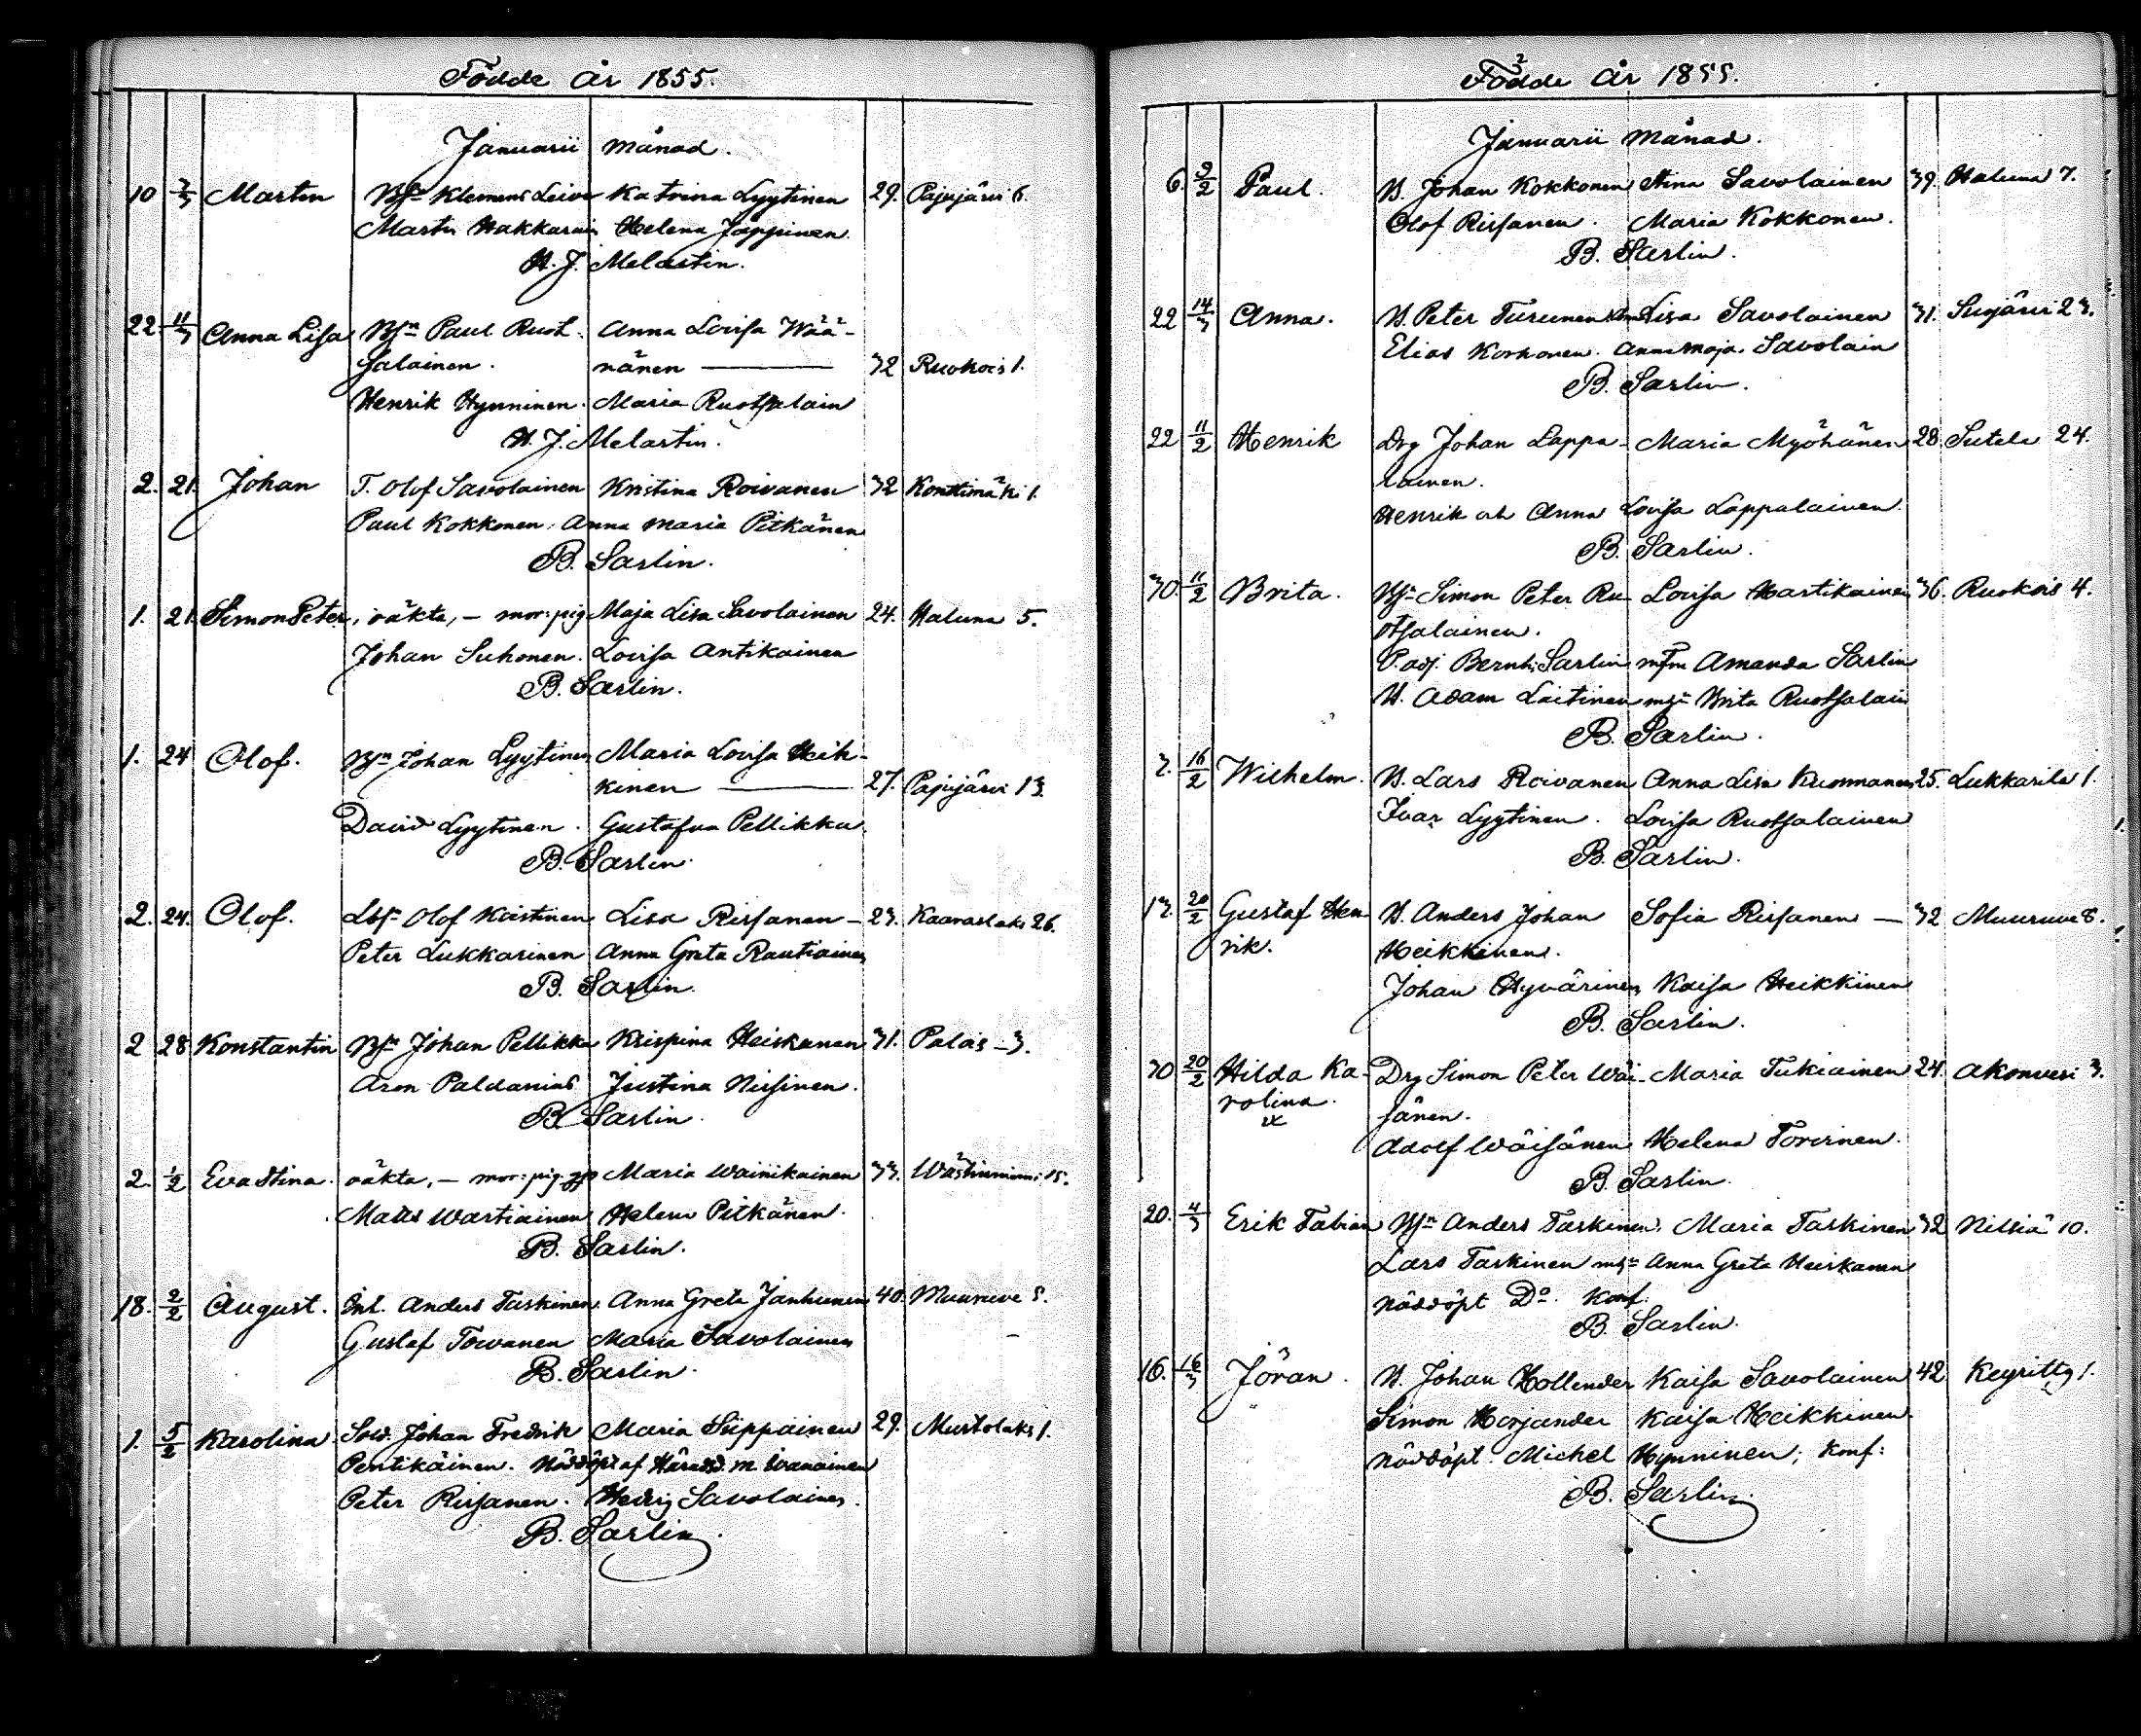 Födde år 1855.
Januarii månad.
10 2/3 Martin Bsn Klemens Leive Katrina Lyytinen 29. Pajujärvi 6.
Martin Hakkarain Helena Jäppinen.
H. J. Melartin.
22 11/3 Anna Lisa Bsn Paul Ruot- Anna Lovisa Wää-
salainen. nänen — 32 Ruokois 1.
Henrik Hynninen. Maria Ruotsalain
H. J. Melartin.
2. 21. Johan T. Olof Savolainen Kristina Roivanen 32 Konttimäki 1.
Paul Kokkonen, Anna Maria Pitkänen
B. Sarlin.
1. 21. Simon Peter, oäkta, – mor: pig Maja Lisa Savolainen 24. Haluna 5.
Johan Suhonen. Lovisa Antikainen
B. Sarlin.
1. 24 Olof. Bsn Johan Lyytinen Maria Lovisa Heik-
kinen — 27. Pajujärvi 13.
David Lyytinen. Gustafva Pellikka.
B. Sarlin.
2. 24. Olof. Lbsn Olof Koistinen Lisa Rissanen – 23. Kaavaslaks 26.
Peter Lukkarinen Anna Greta Rautiainen
B. Sarlin.
2 28 Konstantin Bsn Johan Pellikka Krispina Heiskanen 31. Palois – 3.
Aron Paldanius Justina Nissinen.
B. Sarlin.
2. 1/2 Eva Stina. oäkta, – mor: pig Maria Wainikainen 33. Wästinniemi 15.
Matts Wartiainen Helena Pitkänen.
B. Sarlin.
18. 2/2 August. Inh. Anders Taskinen. Anna Greta Janhunen 40. Muuruve 8.
Gustaf Toivanen Maria Savolainen
B. Sarlin.
1. 5/2 Karolina. Sold. Johan Fredrik Maria Siippainen 29. Murtolaks 1.
Pentikäinen. Nöddöpt af Häradsd. M. Wänäinen
Peter Rissanen. Hedvig Savolainen.
B. Sarlin.
Födde år 1855.
Januarii månad.
6. 3/2 Paul. B. Johan Kokkonen Stina Savolainen 39. Haluna 7.
Olof Rissanen. Maria Kokkonen.
B. Sarlin.
22 14/3 Anna. B. Peter Turunen Lisa Savolainen 31. Sujärvi 23.
Elias Korhonen. Anna Maja Savolain
B. Sarlin.
22 11/2 Henrik Drg Johan Lappa- Maria Myöhänen 28. Sutela 24.
lainen.
Henrik och Anna Lovisa Lappalainen.
B. Sarlin.
30. 11/2 Brita. Bsn Simon Peter Ru- Lovisa Martikainen 36. Ruokois 4.
otsalainen.
P. adj. Bernh: Sarlin m fru Amanda Sarlin
B. Adam Laitinen m hn Brita Ruotsalain
B. Sarlin.
3. 16/2 Wilhelm. B. Lars Roivanen Anna Lisa Kuosmanen 25. Lukkarila 1.
Ivar Lyytinen. Lovisa Ruotsalainen
B. Sarlin.
13. 20/2 Gustaf Hen- B. Anders Johan Sofia Rissanen — 32 Muuruve 8.
rik. Heikkinen.
Johan Hyvärinen, Kaisa Heikkinen
B. Sarlin.
30 20/2 Hilda Ka- Drg Simon Peter Wäi- Maria Tukiainen 24. Akonvesi 3.
rolina. sänen.
Adolf Wäisänen Helena Tovinen.
B. Sarlin.
20. 4/3 Erik Fabian Bsn Anders Taskinen. Maria Taskinen 32 Nilsiä 10.
Lars Taskinen m hn Anna Greta Heiskanen
nöddöpt Do. Konf.
B. Sarlin.
16. 16/3 Jöran. B. Johan Hollender Kaisa Savolainen 42 Keyritty 1.
Simon Harjander Kaisa Heikkinen.
nöddöpt. Michel Hynninen; Konf:
B. Sarlin.